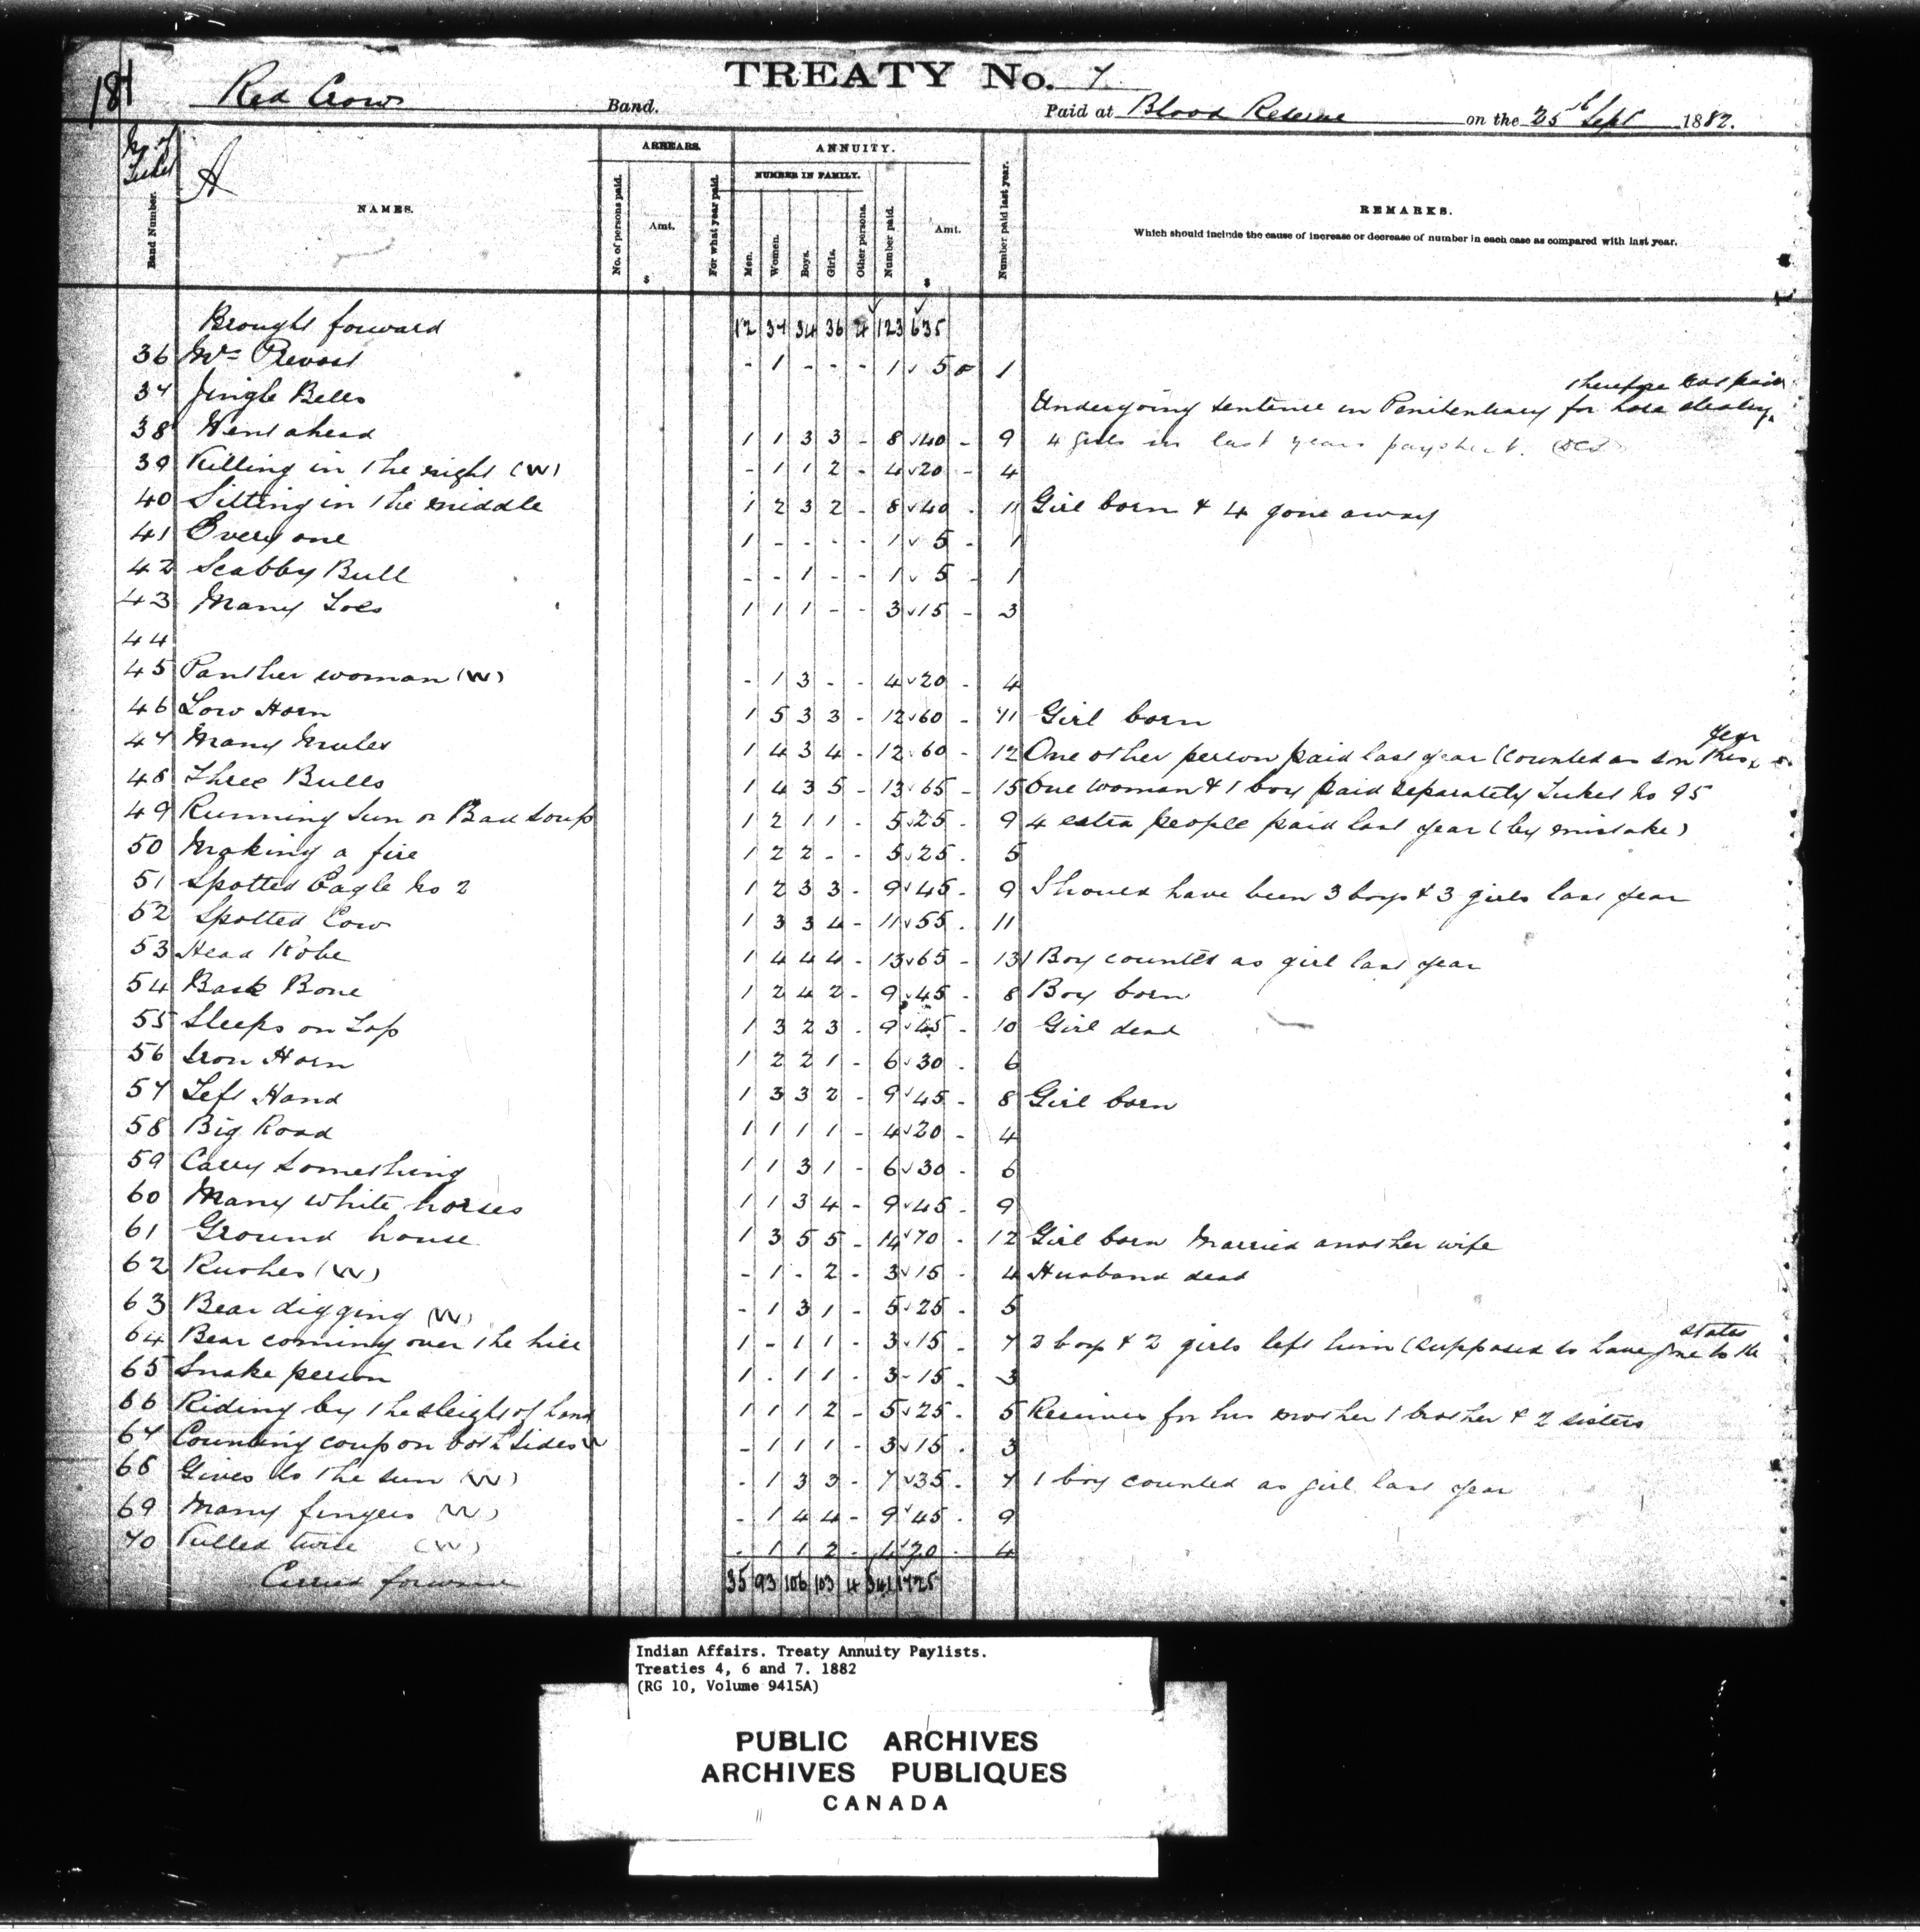 181
TREATY No. 7
Red Crow Band.
Paid at Blood Reserve on the 25th Sept 1882.
No. of Ticket
A
Band Number.
NAMES.
ARREARS.
No. of persons paid.
Amt.
$
For what year paid.
ANNUITY.
NUMBER IN FAMILY.
Men.
Women.
Boys.
Girls.
Other persons.
Number paid.
Amt.
$
Number paid last year.
REMARKS.
Which should include the cause of increase or decrease of number in each case as compared with last year.
Brought forward 12 37 34 36 4 123 635
36 Mrs Prevost - 1 - - - 1 5 0 1
37 Jingle Bells Undergoing sentence in Penitentiary for horse stealing therefore not paid
38 Went ahead 1 1 3 3 - 8 40 - 9 4 girls in last years paysheet.
39 Killing in the night (W) - 1 1 2 - 4 20 - 4
40 Sitting in the middle 1 2 3 2 - 8 40 - 11 Girl born & 4 gone away
41 Every one 1 - - - - 1 5 - 1
42 Scabby Bull - - 1 - - 1 5 - 1
43 Many Toes 1 1 1 - - 3 15 - 3
44
45 Panther woman (W) - 1 3 - - 4 20 - 4
46 Low Horn 1 5 3 3 - 12 60 - 11 Girl born
47 Many Mules 1 4 3 4 - 12 60 - 12 One other person paid last year (counted as son this year
48 Three Bulls 1 4 3 5 - 13 65 - 15 One woman & 1 boy paid separately Ticket No 95
49 Running Sun or Bad Soup 1 2 1 1 - 5 25 - 9 4 extra people paid last year (by mistake)
50 Making a fire 1 2 2 - - 5 25 - 5
51 Spotted Eagle No 2 1 2 3 3 - 9 45 - 9 Should have been 3 boys & 3 girls last year
52 Spotted Cow 1 3 3 4 - 11 55 - 11
53 Head Robe 1 4 4 4 - 13 65 - 13 1 Boy counted as girl last year
54 Back Bone 1 2 4 2 - 9 45 - 8 Boy born
55 Sleeps on Top 1 3 2 3 - 9 45 - 10 Girl dead
56 Iron Horn 1 2 2 1 - 6 30 - 6
57 Left Hand 1 3 3 2 - 9 45 - 8 Girl born
58 Big Road 1 1 1 1 - 4 20 - 4
59 Carry something 1 1 3 1 - 6 30 - 6
60 Many white horses 1 1 3 4 - 9 45 - 9
61 Ground house 1 3 5 5 - 14 70 - 12 Girl born Married another wife
62 Rushes (W) - 1 - 2 - 3 15 - 4 Husband dead
63 Bear digging (W) - 1 3 1 - 5 25 - 5
64 Bear coming over the hill 1 - 1 1 - 3 15 - 7 2 boys & 2 girls left him (supposed to have gone to the states
65 Snake person 1 - 1 1 - 3 - 15 - 3
66 Riding by the sleight of hand 1 1 1 2 - 5 25 - 5 Receives for his mother 1 brother & 2 sisters
67 Counting coup on both sides W - 1 1 1 - 3 15 - 3
68 Gives to the sun (W) - 1 3 3 - 7 35 - 7 1 boy counted as girl last year
69 Many fingers (W) - 1 4 4 - 9 45 - 9
70 Killed twice (W) - 1 1 2 - 4 20 - 4
Carried forward 35 93 106 103 4 341 1725
Indian Affairs. Treaty Annuity Paylists.
Treaties 4, 6 and 7. 1882
(RG 10, Volume 9415A)
PUBLIC ARCHIVES
ARCHIVES PUBLIQUES
CANADA